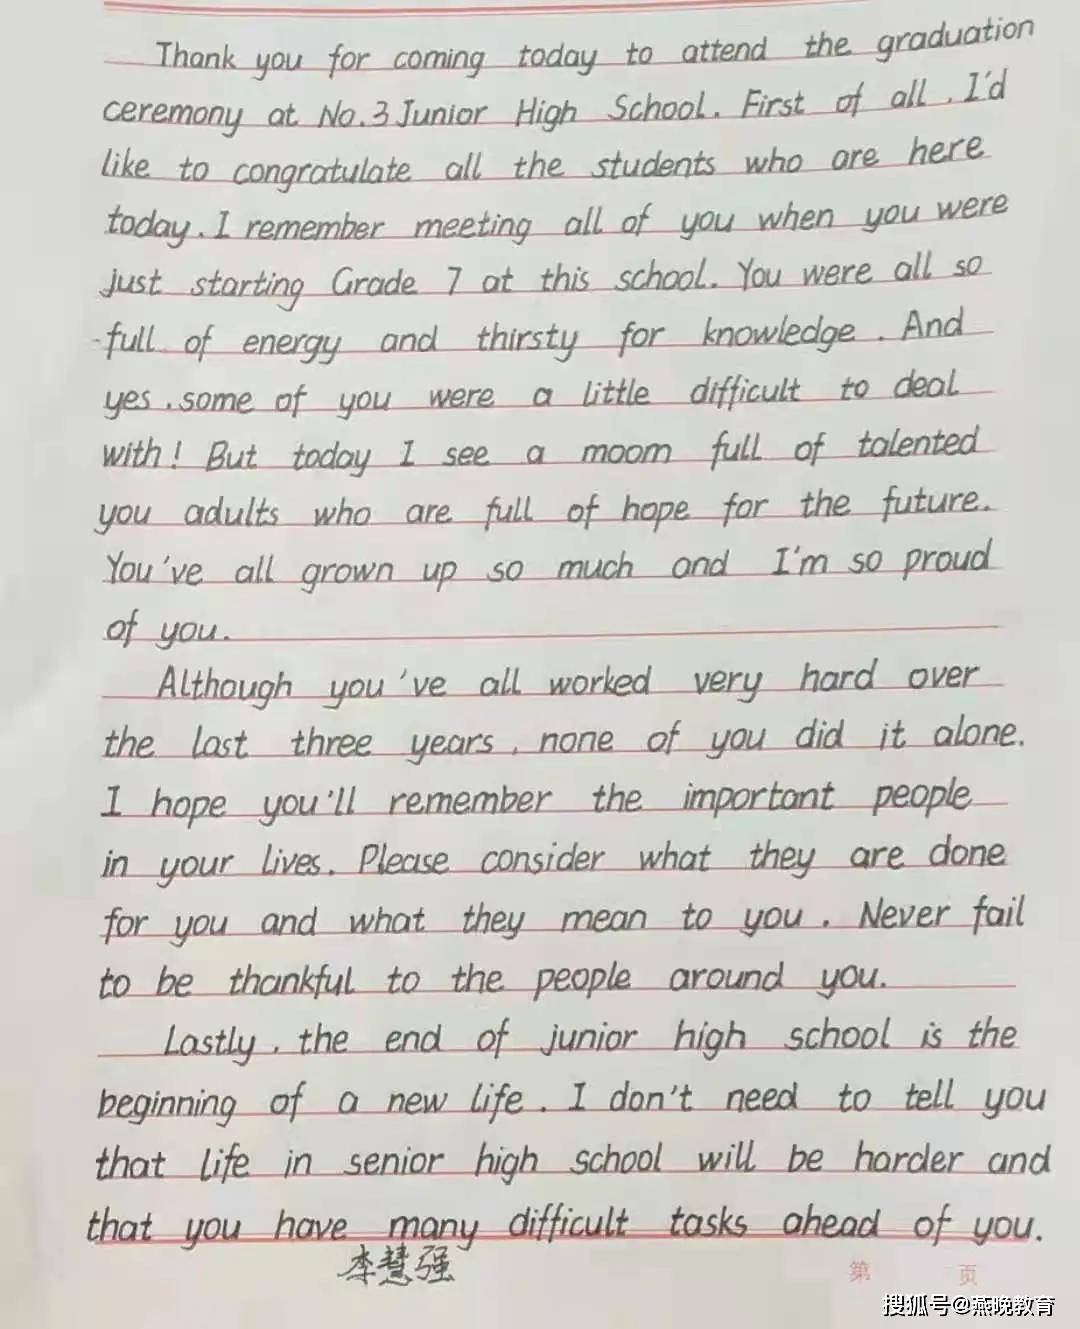 Thank you for coming today to attend the graduation
ceremony at No.3 Junior High School. First of all, I'd
like to congratulate all the students who are here
today. I remember meeting all of you when you were
just starting Grade 7 at this school. You were all so
full of energy and thirsty for knowledge. And
yes, some of you were a little difficult to deal
with! But today I see a moom full of talented
you adults who are full of hope for the future.
You've all grown up so much and I'm so proud
of you.
Although you've all worked very hard over
the last three years, none of you did it alone.
I hope you'll remember the important people
in your lives. Please consider what they are done
for you and what they mean to you. Never fail
to be thankful to the people around you.
Lastly, the end of junior high school is the
beginning of a new life. I don't need to tell you
that life in senior high school will be harder and
that you have many difficult tasks ahead of you.
李慧强
第 页
搜狐号@燕晚教育